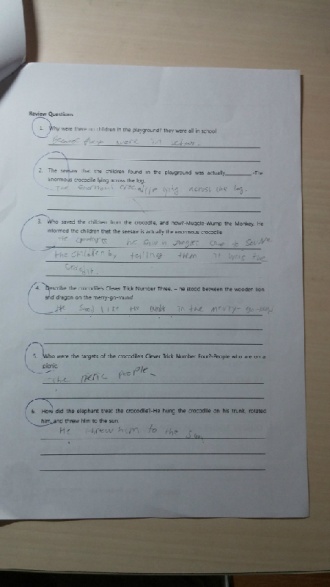 Review Questions
1. Why were there no children in the playground? they were all in school
2. The seesaw for the children found in the playground was actually________.-the
enormous crocodile lying across the log.
The enormous crocodile lying across the log.
3. Who saved the children from the crocodile, and how?-Muggle Wump the Monkey. He
informed the children that the seesaw is actually the enormous crocodile.
the children by telling them
4. Describe the crocodiles Clever Trick Number Three. – He stood between the wooden lion
and dragon on the merry-go-round
in the merry-go-round
5. Who were the targets of the crocodiles Clever Trick Number Four?-People who are on a
picnic
The picnic people.
6. How did the elephant treat the crocodile?-He hung the crocodile on his trunk, rotated
him, and threw him to the sun.
He threw him to the sun